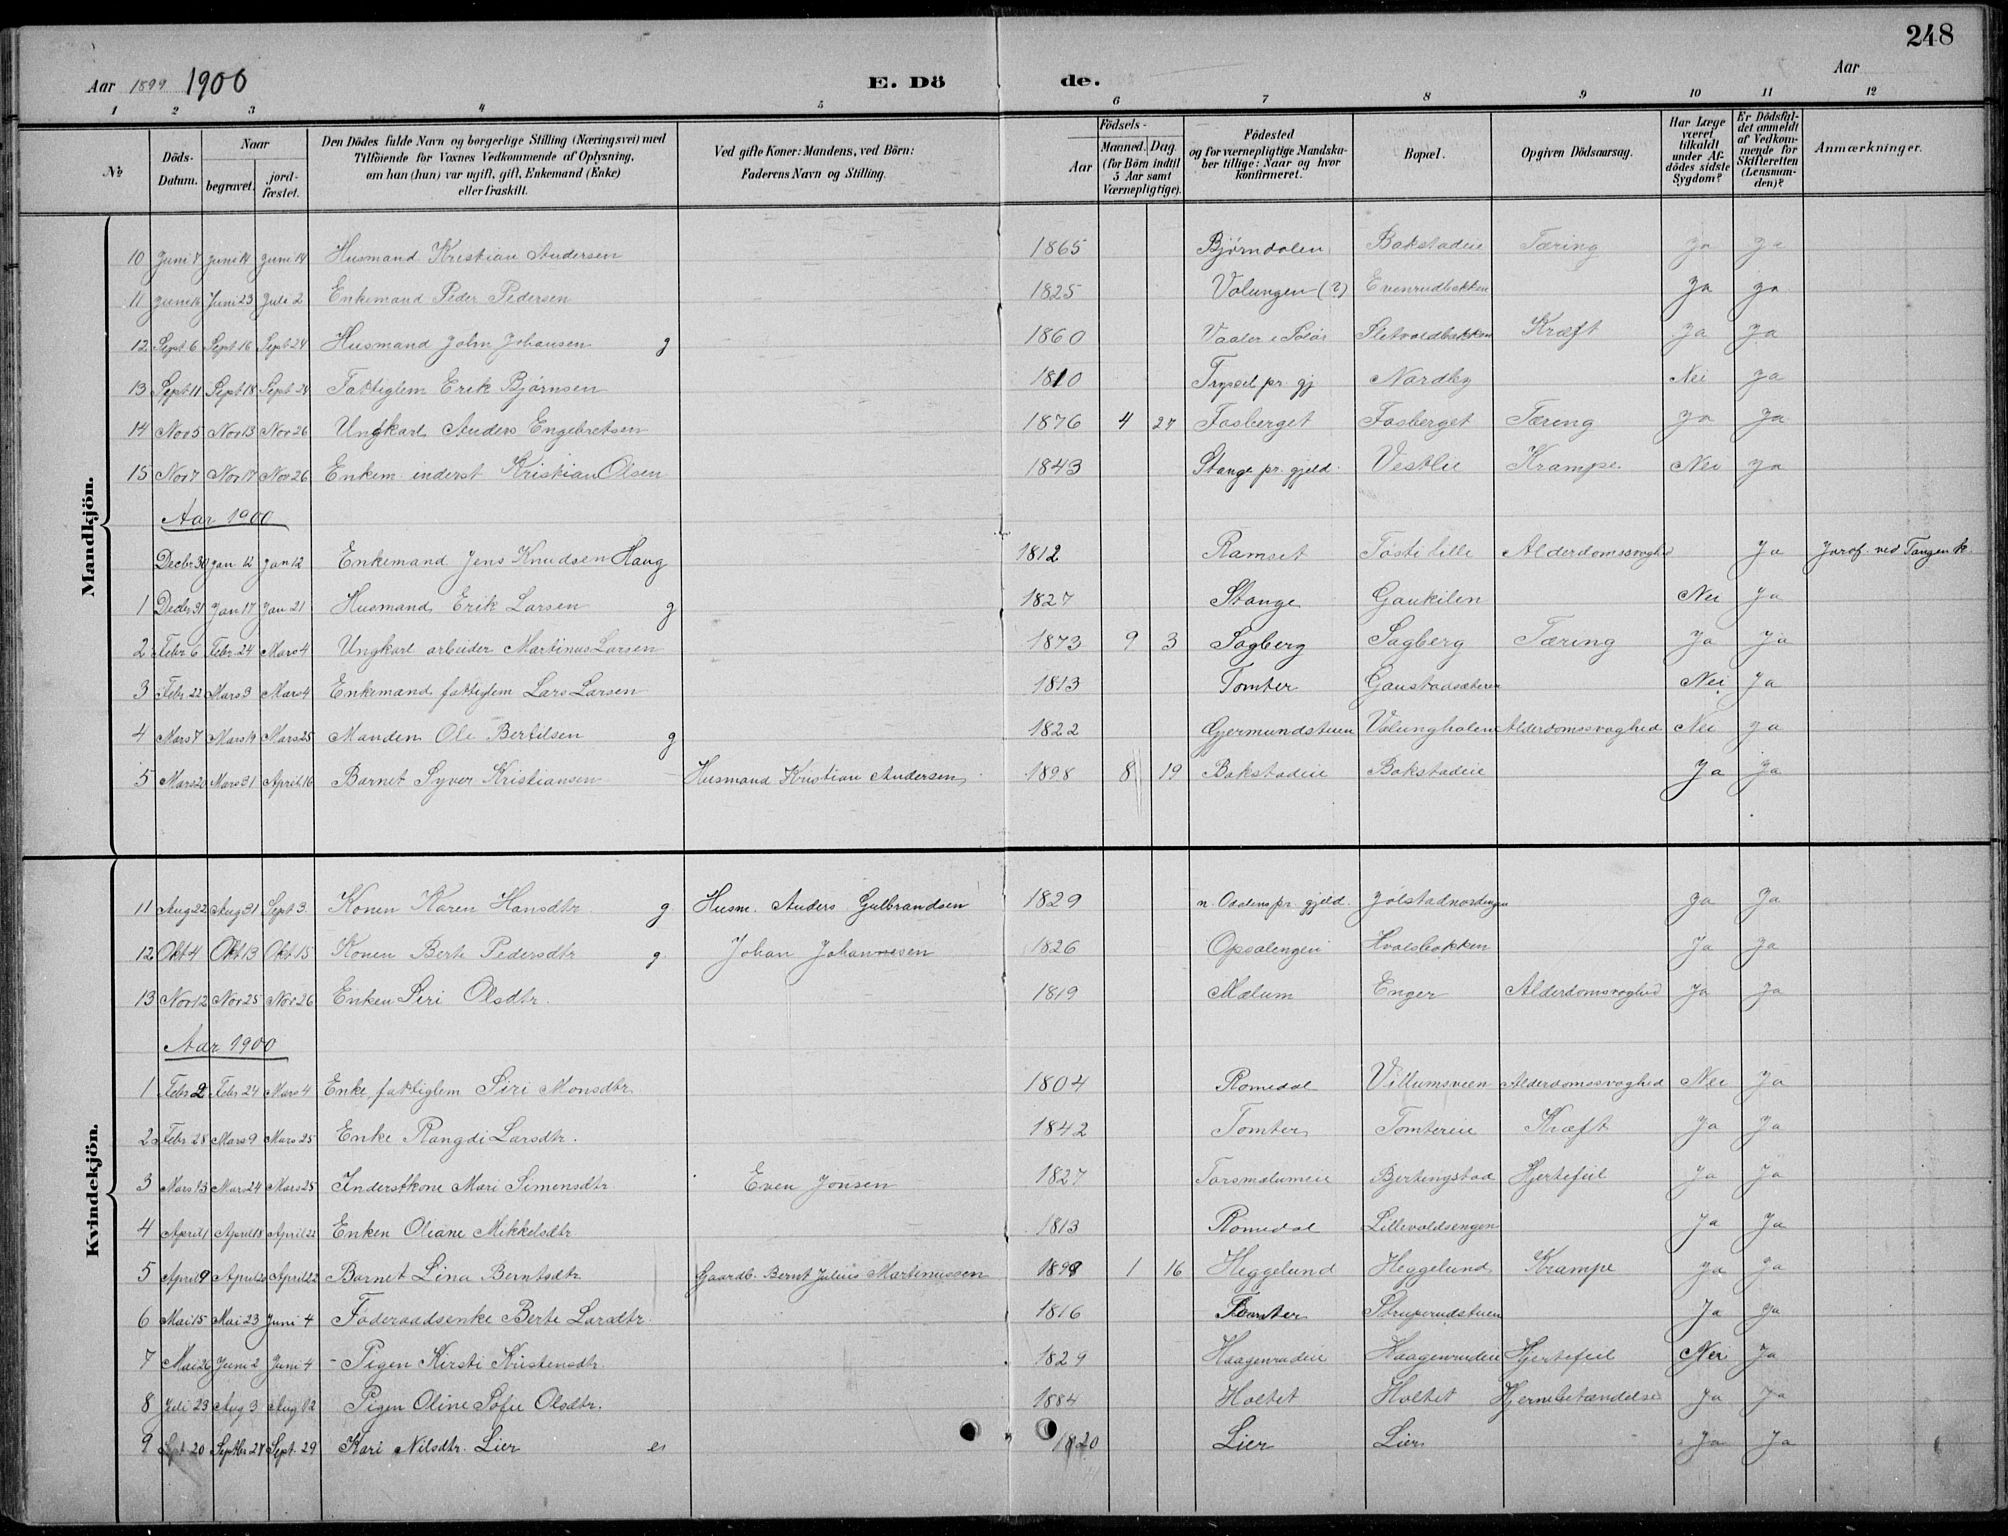 248
Aar 1899 1900 E. Dö de. Aar
1 2 3 4 5 6 7 8 9 10 11 12
№
Döds-Datum.
Naar
begravet.
jord-fæstet.
Den Dödes fulde Navn og borgerlige Stilling (Næringsvei) med Tilföiende for Voxnes Vedkommende af Oplysning, om han (hun) var ugift, gift, Enkemand (Enke) eller fraskilt.
Ved gifte Koner: Mandens, ved Börn: Faderens Navn og Stilling.
Födsels-
Aar
Maaned. Dag.
(for Börn indtil 5 Aar samt Værnepligtige).
Födested og for værnepligtige Mandskaber tillige: Naar og hvor konfirmeret.
Bopæl.
Opgiven Dödsaarsag.
Har Læge været tilkaldt under Afdödes sidste Sygdom?
Er Dödsfaldet anmeldt af Vedkommende for Skifteretten (Lensmanden)?
Anmærkninger.
Mandkjön.
10 Juni 7 Juni 14 Juni 14 Husmand Kristian Andersen 1865 Bjørndalen Bakstadeie Tæring Ja Ja
11 Juni 16 Juni 23 Juli 2 Enkemand Peder Pedersen 1825 Volungen (?) Evenrudbakken Ja Ja
12 Sept 6 Sept 16 Sept 24 Husmand John Johansen g 1860 Vaaler i Solør Sletvoldbakken Kræft Ja Ja
13 Sept 11 Sept 18 Sept 24 Fattiglem Erik Bjørnsen 1810 Trysil pr. gj Nordby Nei Ja
14 Nov 5 Nov 13 Nov 26 Ungkarl Anders Engebretsen 1876 4 27 Fosberget Fosberget Tæring Ja Ja
15 Nov 7 Nov 17 Nov 26 Enkem. inderst Kristian Olsen 1843 Stange pr. gjeld. Vestlie Krampe Nei Ja
Aar 1900
Decbr 30 Jan 12 Jan 12 Enkemand Jens Knudsen Haug 1812 Ramset Tøsti lille Alderdomssvaghed Ja Jordf. ved Tangen k.
1 Decbr 31 Jan 17 Jan 21 Husmand Erik Larsen g 1827 Stange Gaukilen Nei Ja
2 Febr 6 Febr. 24 Mars 4 Ungkarl arbeider Martinus Larsen 1873 9 3 Sagberg Sagberg Tæring Ja Ja
3 Febr 22 Mars 3 Mars 4 Enkemand fattiglem Lars Larsen 1813 Tomter Gaustadsæteren Nei Ja
4 Mars 7 Mars 14 Mars 25 Manden Ole Bertilsen g 1822 Gjermundstuen Volungholen Alderdomssvaghed Nei Ja
5 Mars 20 Mars 31 April 16 Barnet Syver Kristiansen Husmand Kristian Andersen 1898 8 19 Bakstadeie Bakstadeie Ja Ja
Kvindekjön.
11 Aug 22 Aug 31 Sept 3. Konen Karen Hansdtr. g Husm. Anders Gulbrandsen 1829 n. Odalens pr. gjeld. Jølstadnordengen Ja Ja
12 Okt 4 Okt 13 Okt 15 Konen Berte Pedersdtr g Johan Johannesen 1826 Opsalengen Hvalsbakken Ja Ja
13 Nov 12 Nov 25 Nov 26 Enken Siri Olsdtr. 1819 Mælum Enger Alderdomsvaghed Ja Ja
Aar 1900
1 Febr 2 Febr 24 Mars 4 Enke, fattiglem Siri Monsdtr 1804 Romedal Villumsveen Alderdomssvaghed Nei Ja
2 Febr 28 Mars 9 Mars 25 Enke Rangdi Larsdtr. 1842 Tomter Tomtereie Kræft Ja Ja
3 Mars 13 Mars 24 Mars 25 Inderstkone Mari Simensdtr Even Jonsen 1827 Torsmælumeie Bjertingstad Hjertefeil Ja Ja
4 April 1 April 18 April 22 Enken Oliane Mikkelsdtr 1813 Romedal Lillevoldsengen Ja Ja
5 April 9 April 20 April 22 Barnet Lina Berntsdtr Gaardb. Bernt Julius Martinussen 1898 1 16 Heggelund Heggelund Krampe Ja Ja
6 Mai 15 Mai 23 Juni 4 Føderaadsenke Berte Larsdtr. 1816 Tomter Struperudstuen Ja Ja
7 Mai 26 Juni 2 Juni 4 - Pigen Kirsti Kristensdtr. 1829 Haagenrudeie Haagenrudeie Hjertefeil Nei Ja
8 Juli 23 Aug 3 Aug 12 Pigen Oline Sofie Olsdtr. 1884 Holtet Holtet Hjernebetændelse Ja Ja
9 Sept 20 Septbr 27 Sept. 29 Kari Nilsdtr. Lier e 1820 Lier Lier Ja Ja